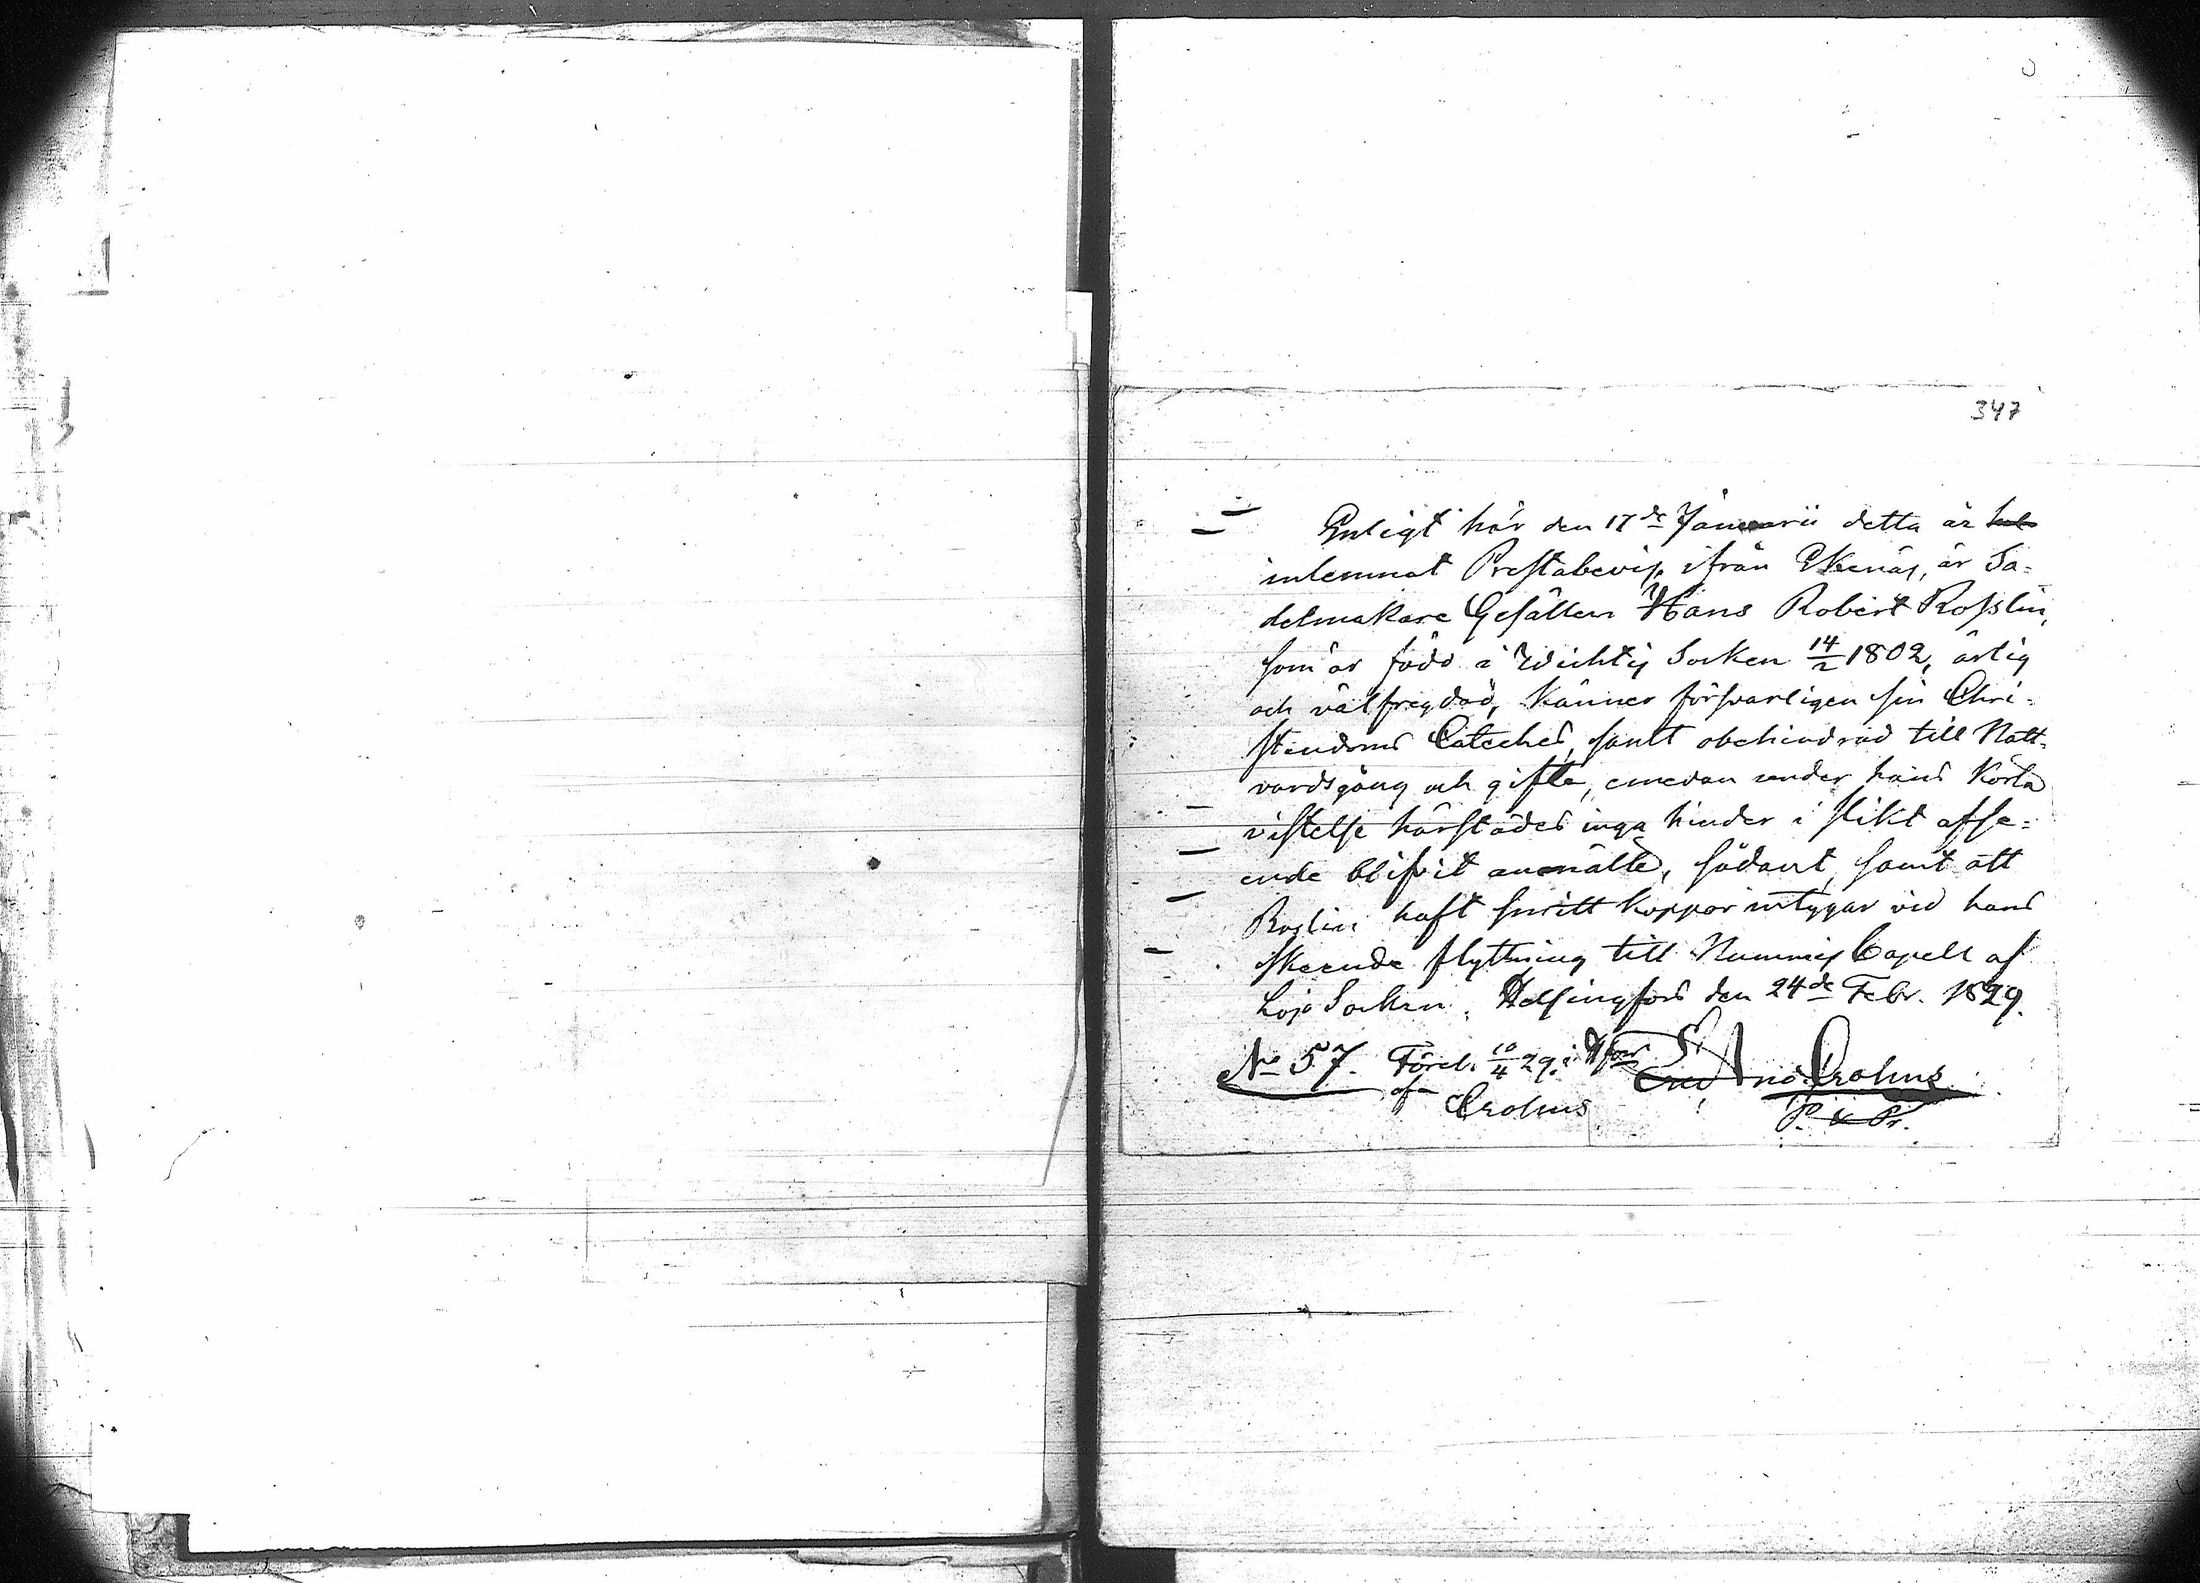 347
Enligt här den 17de Januarii detta år
inlemnat Prestabevis ifrån Ekenäs, är Sa=
delmakare Gesällen Hans Robert Rosslin,
som är född i Wichtis Socken 14/2 1802, ärlig
och välfregdad, känner försvarligen sin Chri=
stendoms Cateches, samt obehindrad till Natt=
vardsgång och gifte, emedan under hans korta
vistelse härstädes inga hinder i slikt afse=
ende blifvit anmälte, sådant, samt att
Roslin haft smitt koppor intygar vid hans
skeende flyttning till Nummis Capell af
Lojo Socken. Helsingfors den 24de Febr. 1829.
No 57. Föret. 10/4 29. i Hfors
af Crohns
Crohns
P. &